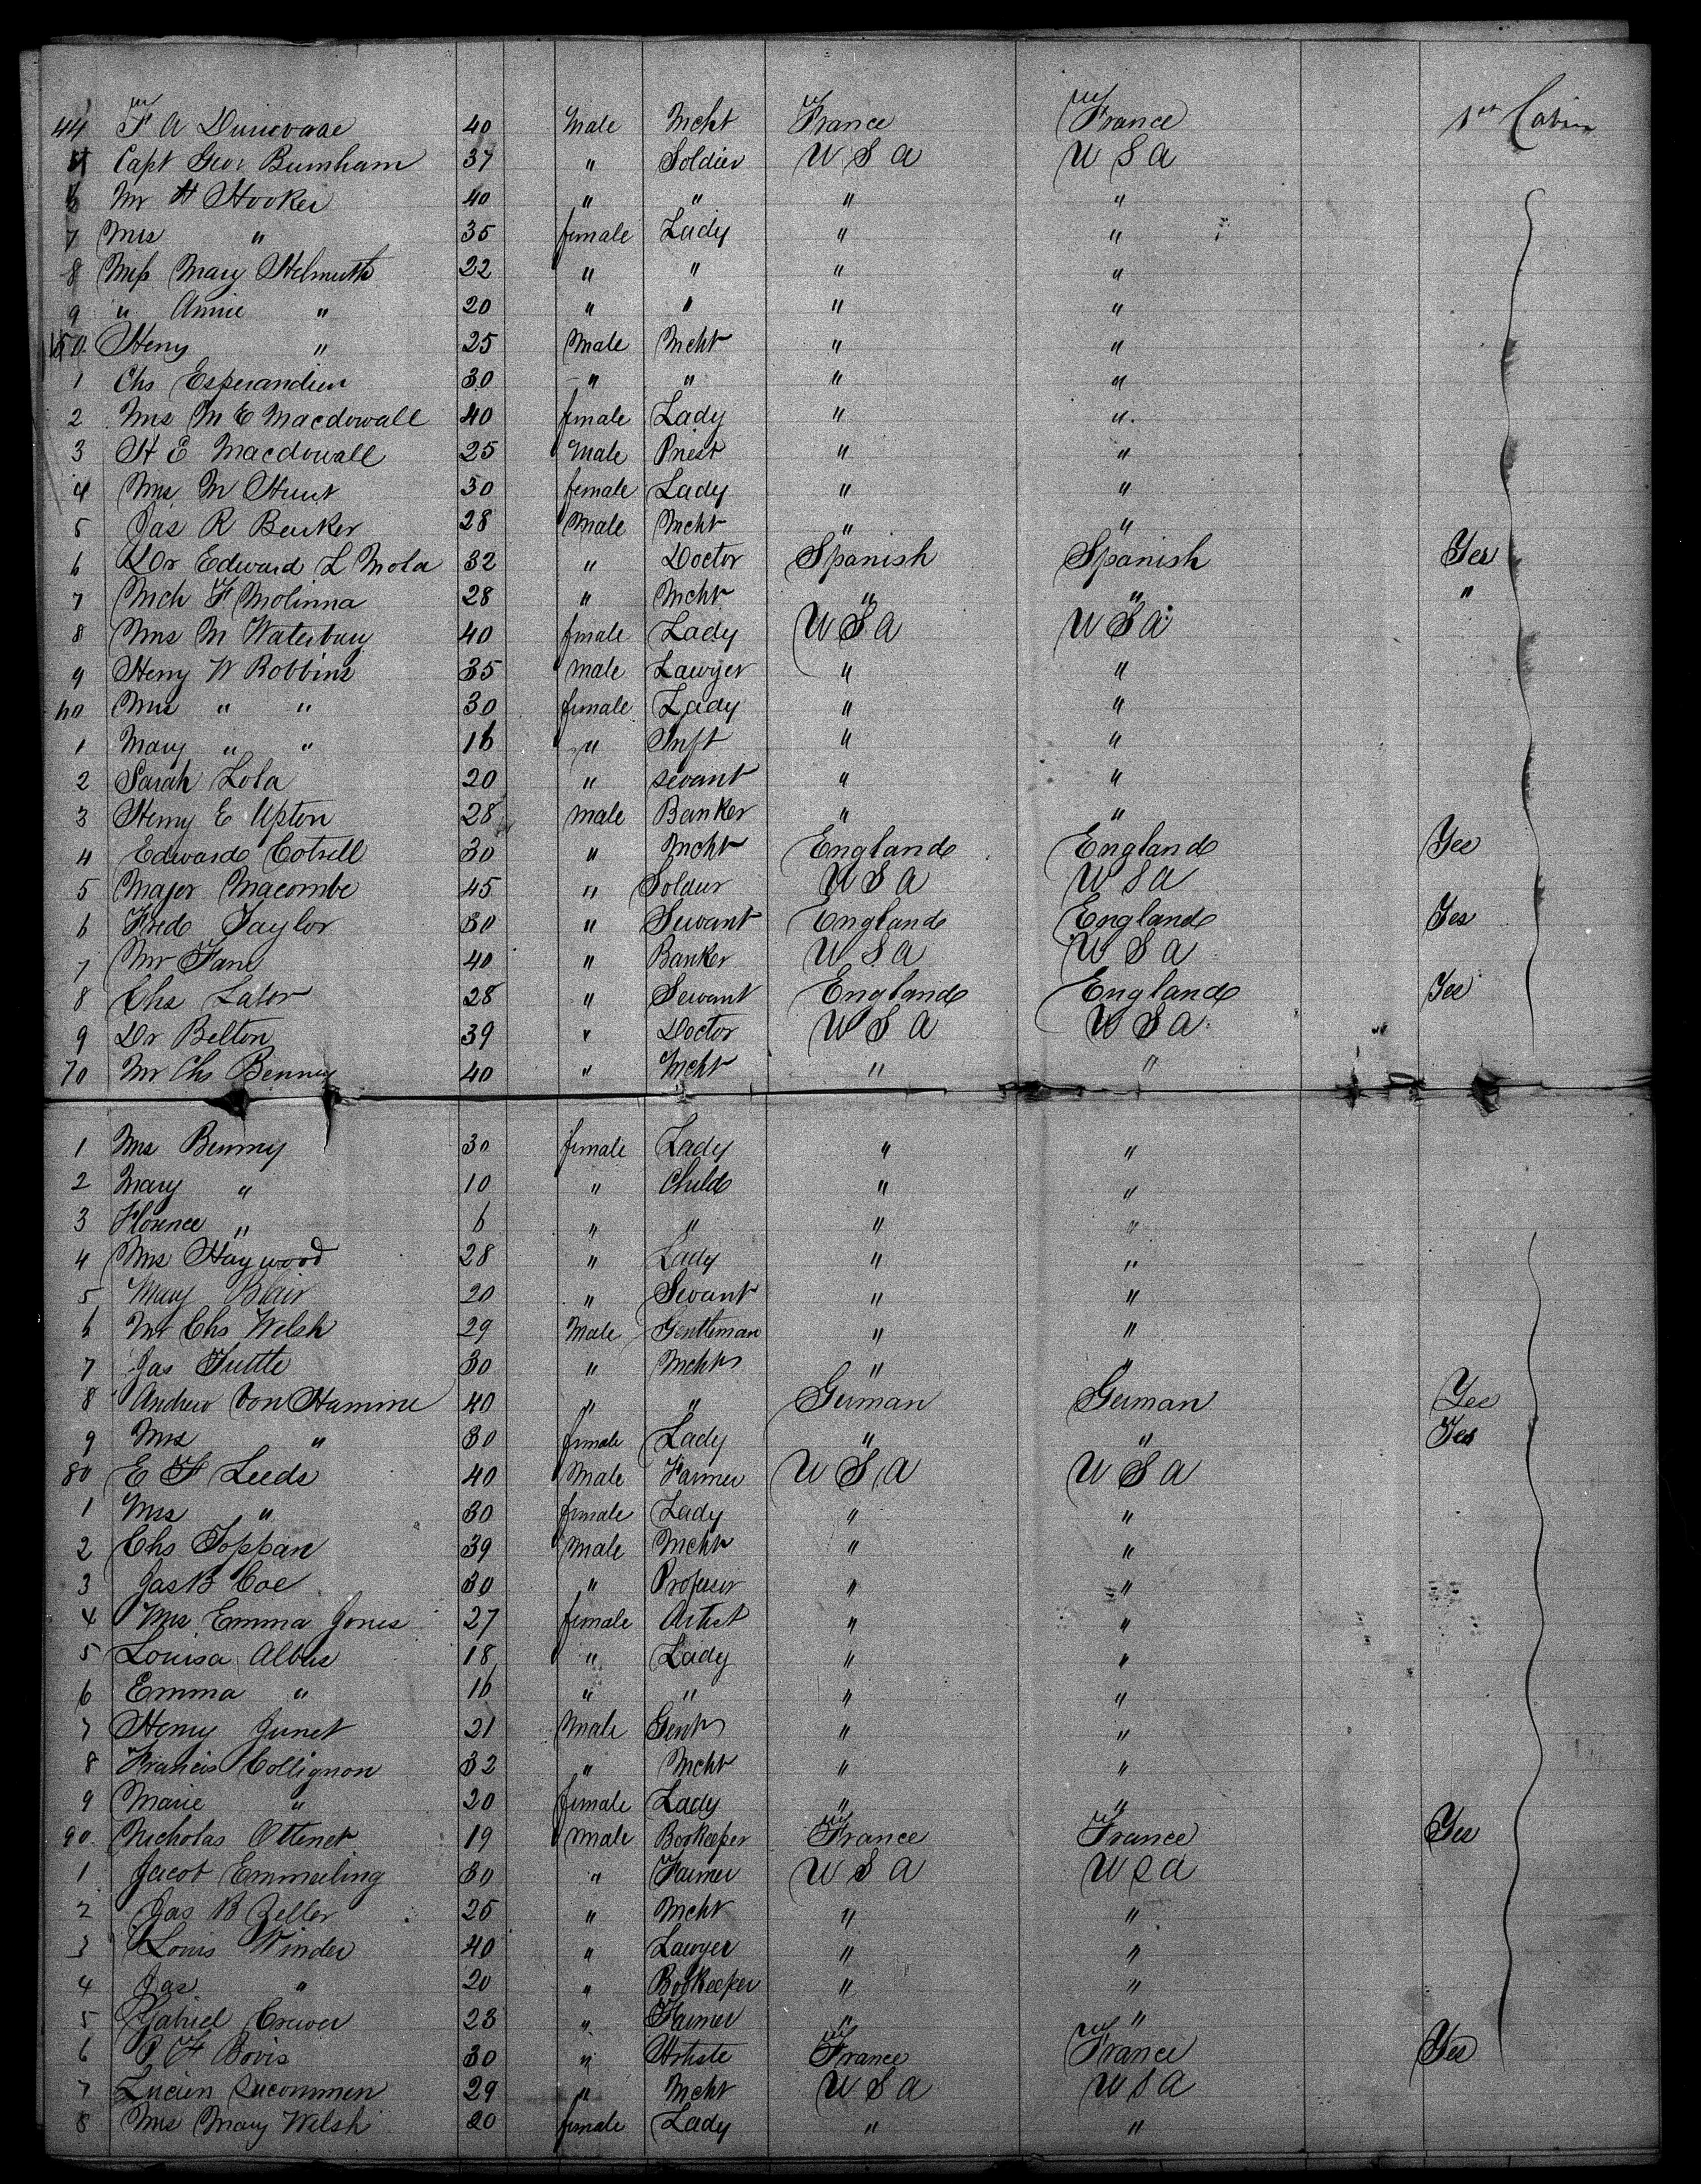 44 F A 40 Male Mcht France France 1st Cabin
Capt Geo Burnham 37 " Soldier U S A U S A
6 Mr H Hooker 40 " " " "
7 Mrs " 35 female Lady " "
8 Miss Mary Helmuth 22 " " " "
9 " Annie " 20 " " " "
150 Henry " 25 Male Mcht " "
1 Chs Esperandieu 30 " " " "
2 Mrs M E Macdowall 40 female Lady " "
3 H E Macdowall 25 Male Priest " "
4 Mrs M Hunt 30 female Lady " "
5 Jas R 28 Male Mcht " "
6 Dr Edward L Mola 32 " Doctor Spanish Spanish Yes
7 Mch F Molinna 28 " Mcht " " "
8 Mrs M Waterbury 40 female Lady U S A U S A
9 Henry W Robbins 35 male Lawyer " "
60 Mrs " " 30 female Lady " "
1 Mary " " 16 " Inft " "
2 Sarah Lola 20 " servant " "
3 Henry E Upton 28 male Banker " "
4 Edward Cotrell 30 " Mcht England England Yes
5 Major Macombe 45 " Soldier U S A U S A
6 Fred Taylor 30 " Servant England England Yes
7 Mr Fane 40 " Banker U S A U S A
8 Chs Lalor 28 " Servant England England Yes
9 Dr Belton 39 " Doctor U S A U S A
70 Mr Chs Benney 40 " Mcht " "
1 Mrs Benney 30 female Lady " "
2 Mary " 10 " Child " "
3 Florence " 6 " " " "
4 Mrs Haywood 28 " Lady " "
5 Mary Blair 20 " Servant " "
6 Mr Chs Welsh 29 Male Gentleman " "
7 Jas Tuttle 30 " Mcht " "
8 Andrew Von Hamme 40 " " German German Yes
9 Mrs " 30 female Lady " " Yes
80 E F Leeds 40 Male Farmer U S A U S A
1 Mrs " 30 female Lady " "
2 Chs Toppan 39 Male Mcht " "
3 Jas B Coe 30 " Professor " "
4 Mrs Emma Jones 27 female Artist " "
5 Louisa Albus 18 " Lady " "
6 Emma " 16 " " " "
7 Henry Junet 21 Male Gent " "
8 Francis Collignon 32 " Mcht " "
9 Marie " 20 female Lady " "
90 Nicholas Ottenet 19 Male Bookeeper France France Yes
1 Jacob Emmerling 30 " Farmer U S A U S A
2 Jas B Zeller 25 " Mcht " "
3 Louis Winder 40 " Lawyer " "
4 Jas " 20 " Bookeeper " "
5 Gabriel 23 " Farmer " "
6 P F Bovis 30 " Artiste France France Yes
7 Lucien 29 " Mcht U S A U S A
8 Mrs Mary Welsh 20 female Lady " "